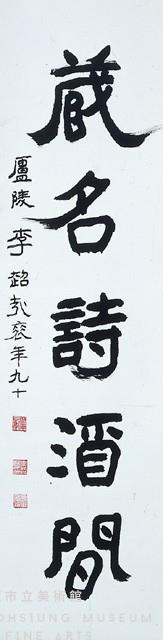 藏名詩酒間
廬陵李超哉年九十
市立美術館
OHSIUNG MUSEUM
FINE ARTS